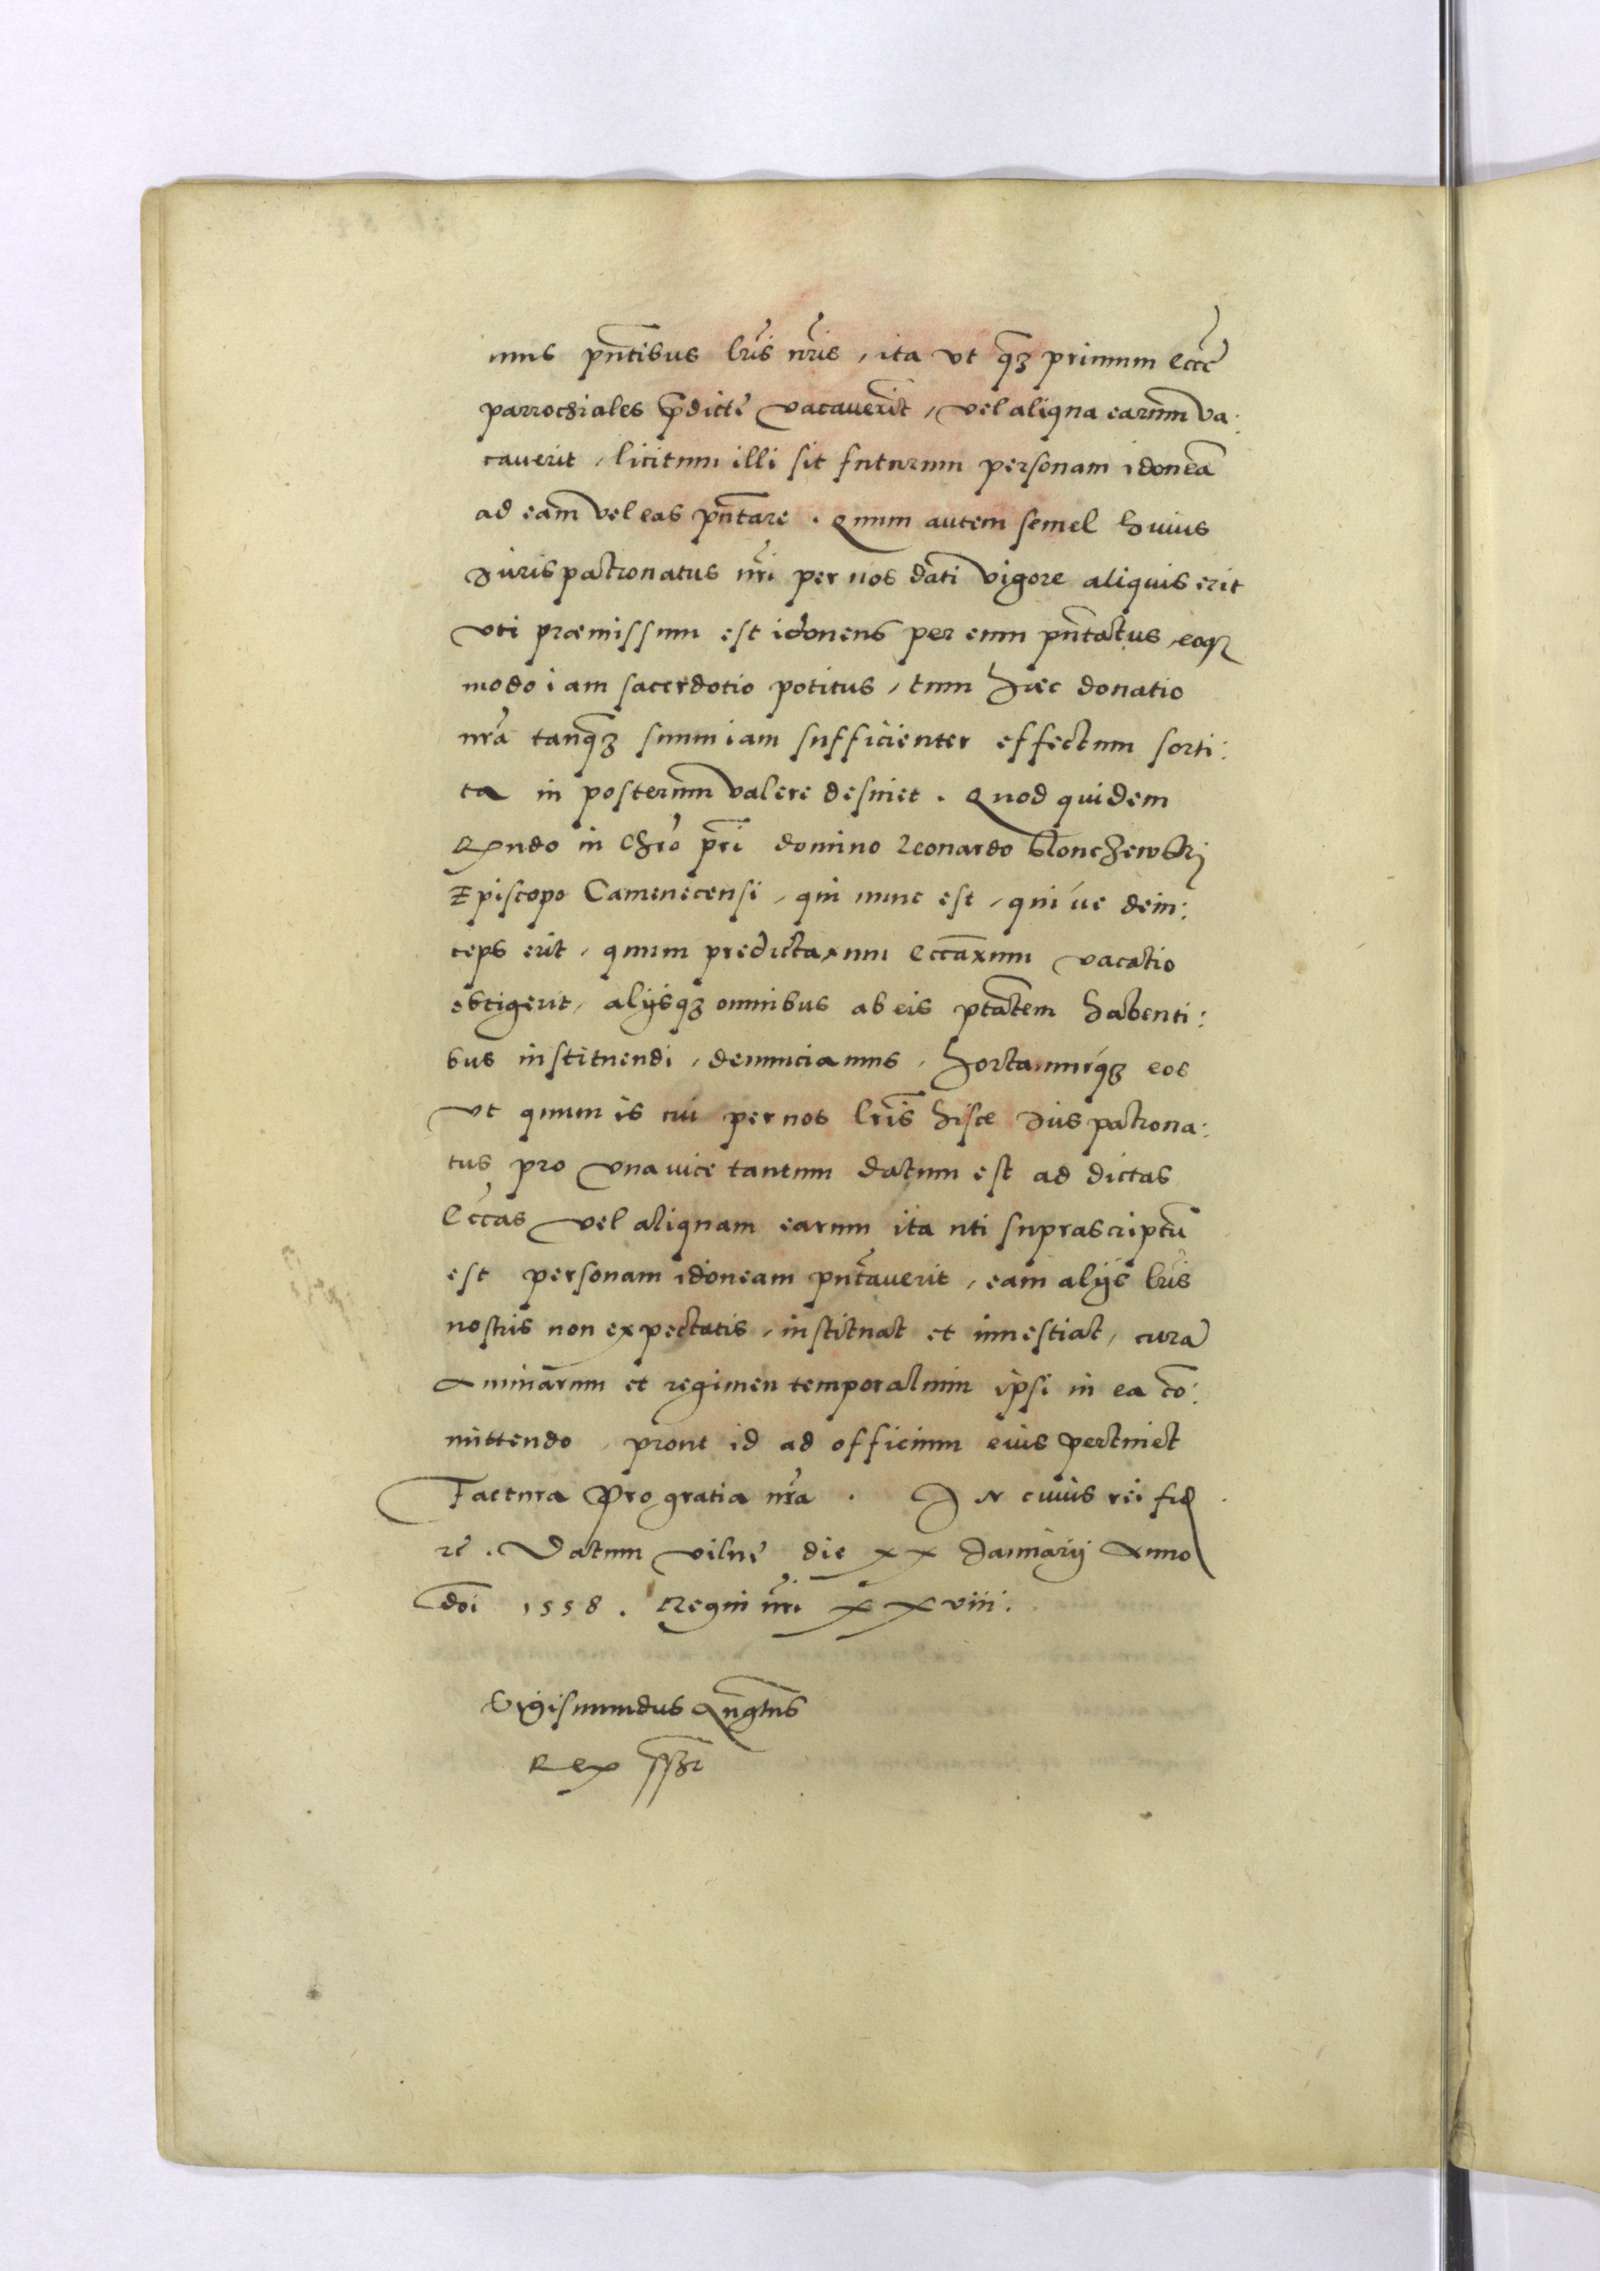 mus pn̄tibus lr̄is nr̄is, ita vt q̄ꝫ primum Ecc̄ę
parrochiales p̄dictę vacauerīt, vel aliqua earum va:
cauerit, licitum illi sit futurum personam idoneā
ad eam vel eas pn̄tare. Quum autem semel huius
Jurispatronatus nr̄i per nos dati vigore aliquis erit
vti præmissum est idoneus per eum pn̄tatus, eoqꝫ
modo iam sacerdotio potitus, tum hæc donatio
nr̄a tanq̄ꝫ suum iam sufficienter effectum sorti:
ta in posterum valere desinet. Quod quidem
Rṇdo in Chr̄o pr̄i domino Leonardo Slonchewskij
Episcopo Camenecensi, qui nunc est, qui úe dein:
ceps erit, quum predictarum Ecc̄arum vacatio
obtigerit, alijsqꝫ omnibus ab eis ptātem habenti:
bus instituendi, denunciamus, hortamurq́ꝫ eos
vt quum is cui per nos lr̄is hisce Jus patrona:
tus pro vna uice tantum datum est ad dictas
Ecc̄as vel aliquam earum ita uti suprascriptū
est personam idoneam pn̄tauerit, eam alijs lr̄is
nostris non expectatis, instituat et inuestiat, curā
Animarum et regimen temporalium ipsi in ea cō:
mittendo, prout id ad officium eius pertinet
Factura pro gratia nr̄a. IN cuius rei fid
rē. Datum vilnę die xx Januarij Anno
dn̄i 1558. Regni nr̄i xxviii.
Sigismundus Augtus
Rex sszt